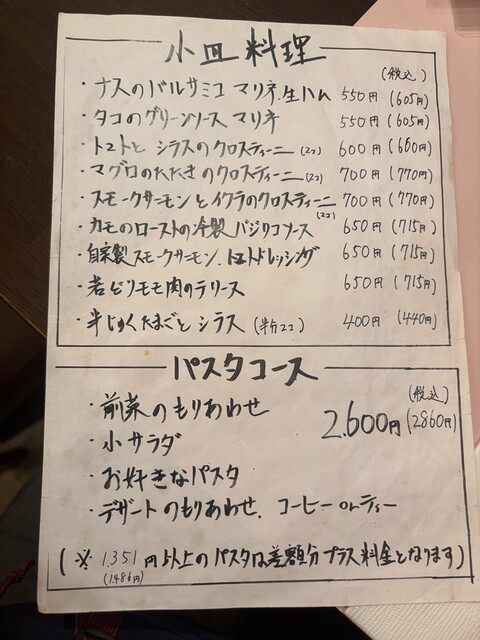 小皿料理
(税込)
・ナスのバルサミコマリネ.生ハム 550円(605円)
・タコのグリーンソースマリネ 550円(605円)
・トマトとシラスのクロスティーニ(2コ) 600円(660円)
・マグロのたたきのクロスティーニ(2コ) 700円(770円)
・スモークサーモンとイクラのクロスティーニ(2コ) 700円(770円)
・カモのローストの冷製バジリコソース 650円(715円)
・自家製スモークサーモン.トマトドレッシング 650円(715円)
・若どりモモ肉のテリーヌ 650円(715円)
・半じゅくたまごとシラス(半分2コ) 400円(440円)
パスタコース
(税込)
・前菜のもりあわせ 2.600円(2860円)
・小サラダ
・お好きなパスタ
・デザートのもりあわせ.コーヒーorティー
(※1.351円以上のパスタは差額分プラス料金となります)
(1.486円)